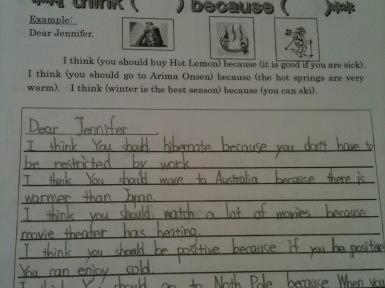 I think (     ) because (     )
Example:
Dear Jennifer,
I think (you should buy Hot Lemon) because (it is good if you are sick).
I think (you should go to Arima Onsen) because (the hot springs are very
warm).   I think (winter is the best season) because (you can ski).
Dear Jennifer
I think You should hibernate because you don't have to
be restricted by work.
I think You should move to Australia because there is
warmer than Japan.
I think you should watch a lot of movies because
movie theater has heating.
I think you should be positive because if you be positive
You can enjoy cold.
I think You should go to Noth Pole because When you